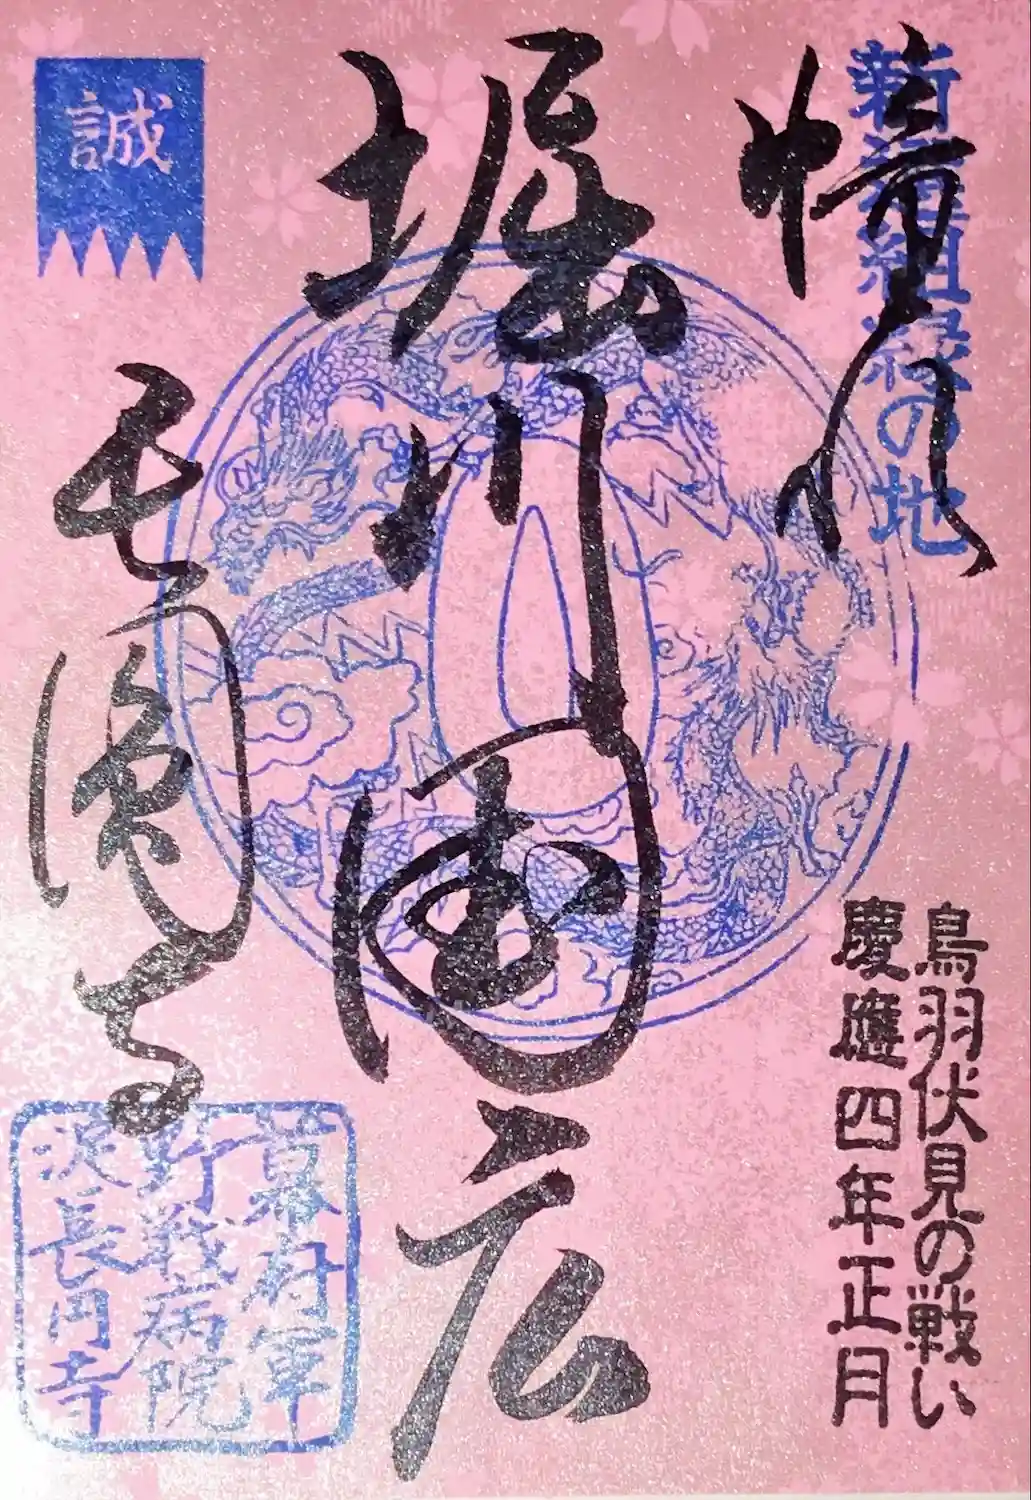 新選組縁の地
憧れ
鳥羽伏見の戦い
慶應四年正月
堀川国広
誠
長圓寺
幕府軍
野戦病院
淀長円寺